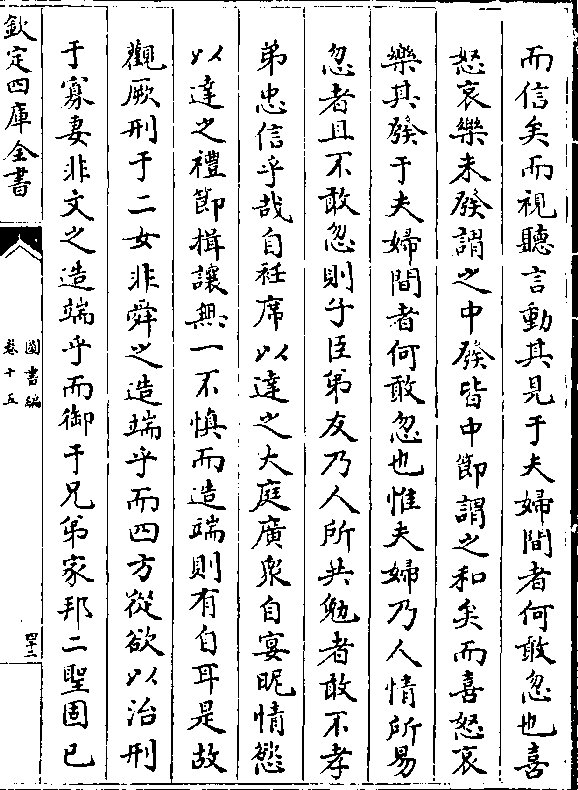 而信矣而視聽言動其見于夫婦間者何敢忽也喜
怒哀樂未發謂之中發皆中節謂之和矣而喜怒哀
樂其發于夫婦間者何敢忽也惟夫婦乃人情所易
忽者且不敢忽則子臣弟友乃人所共勉者敢不孝
弟忠信乎哉自袵席以達之大庭廣衆自宴昵情慾
以達之禮節揖讓無一不慎而造端則有自耳是故
觀厥刑于二女非舜之造端乎而四方從欲以治刑
于寡妻非文之造端乎而御于兄弟家邦二聖固已
欽定四庫全書
圖書編
卷十五
四十二